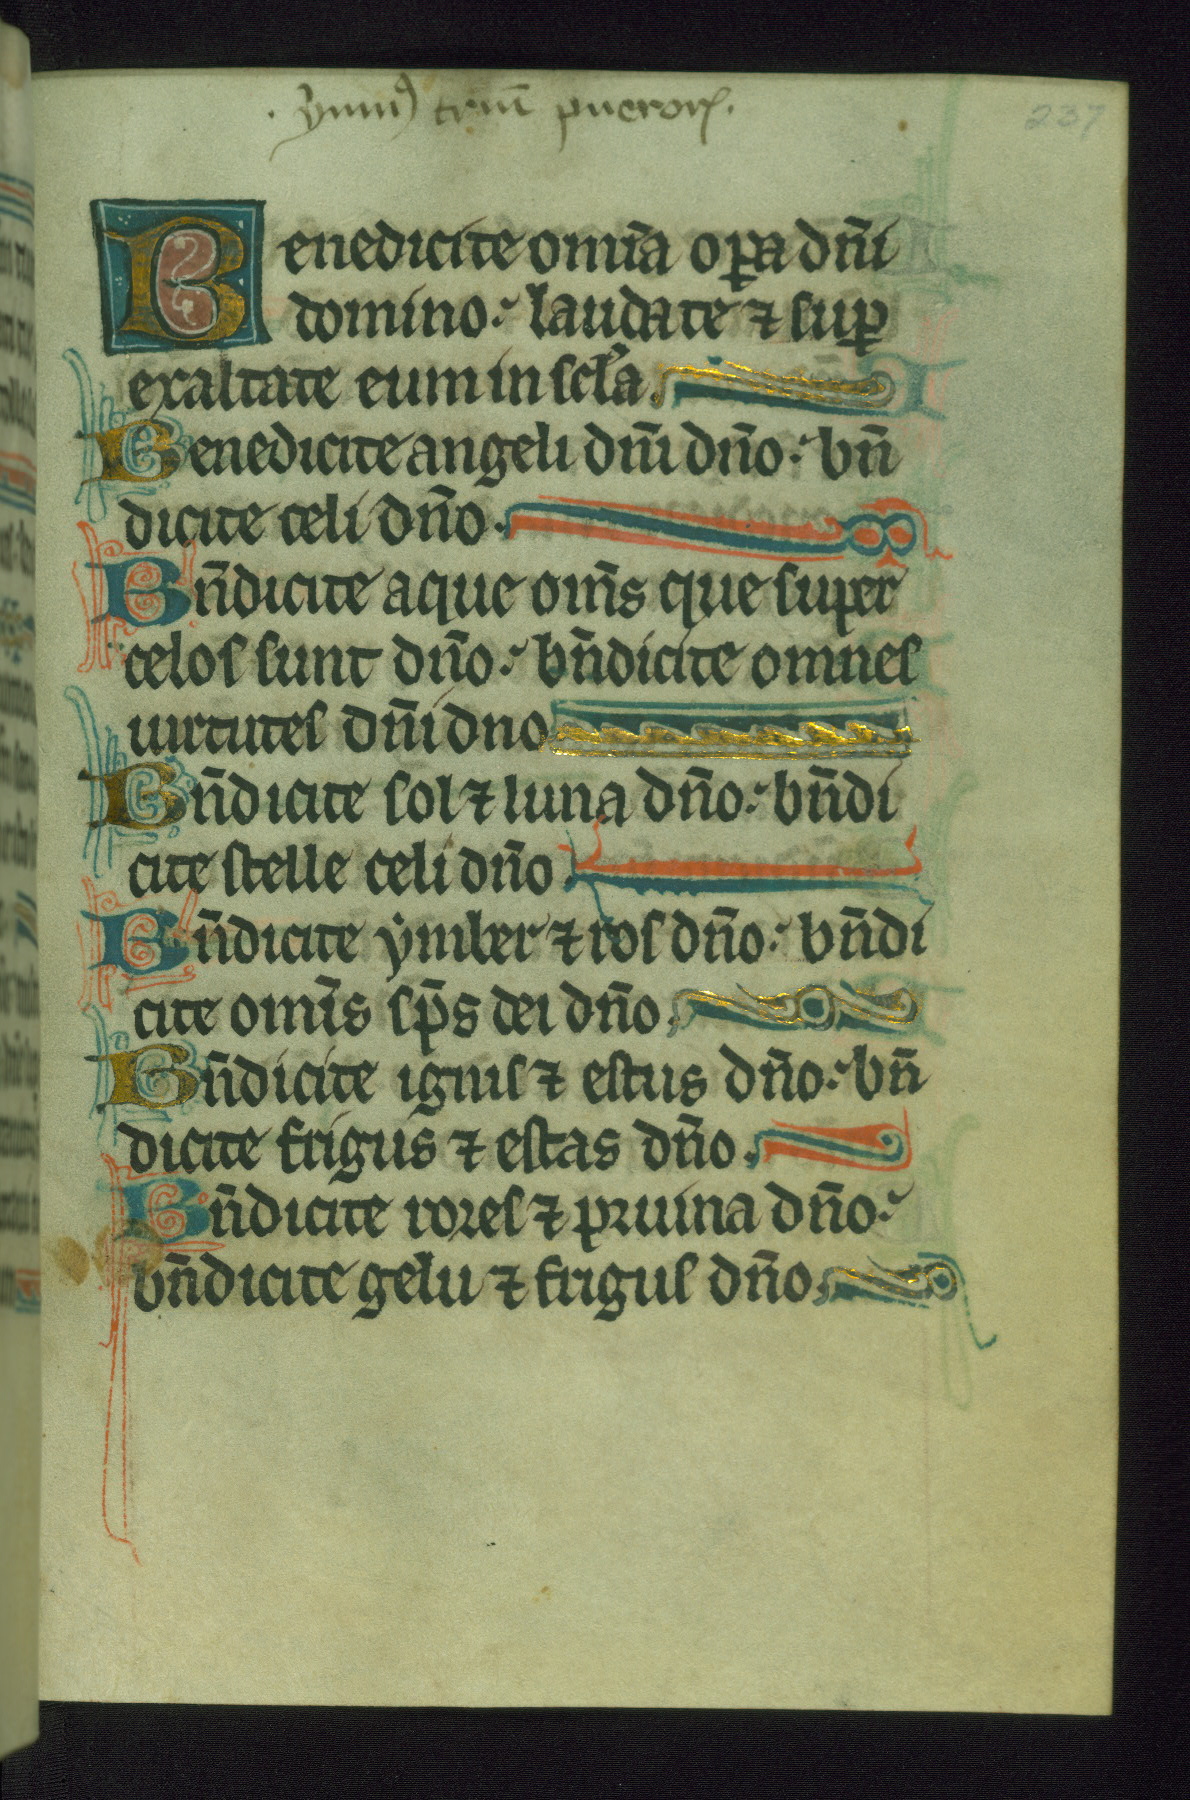 . ymnꝰ triū pueroꝝ. 237
Benedicite om̄ia oꝑa dn̄i
domino: laudate ⁊ suꝑ
exaltate eum in scl̓a.
Benedicite angeli dn̄i dn̄o: bn̄
dicite celi dn̄o.
Bn̄dicite aque om̄s que super
celos sunt dn̄o: bn̄dicite omnes
uirtutes dn̄i dno
Bn̄dicite sol ⁊ luna dn̄o: bn̄di
cite stelle celi dn̄o.
Bn̄dicite ẏmber ⁊ ros dn̄o: bn̄di
cite om̄s sp̄s dei dn̄o.
Bn̄dicite ignis ⁊ estus dn̄o: bn̄
dicite frigus ⁊ estas dn̄o.
Bn̄dicite rores ⁊ pruina dn̄o:
bn̄dicite gelu ⁊ frigus dn̄o.